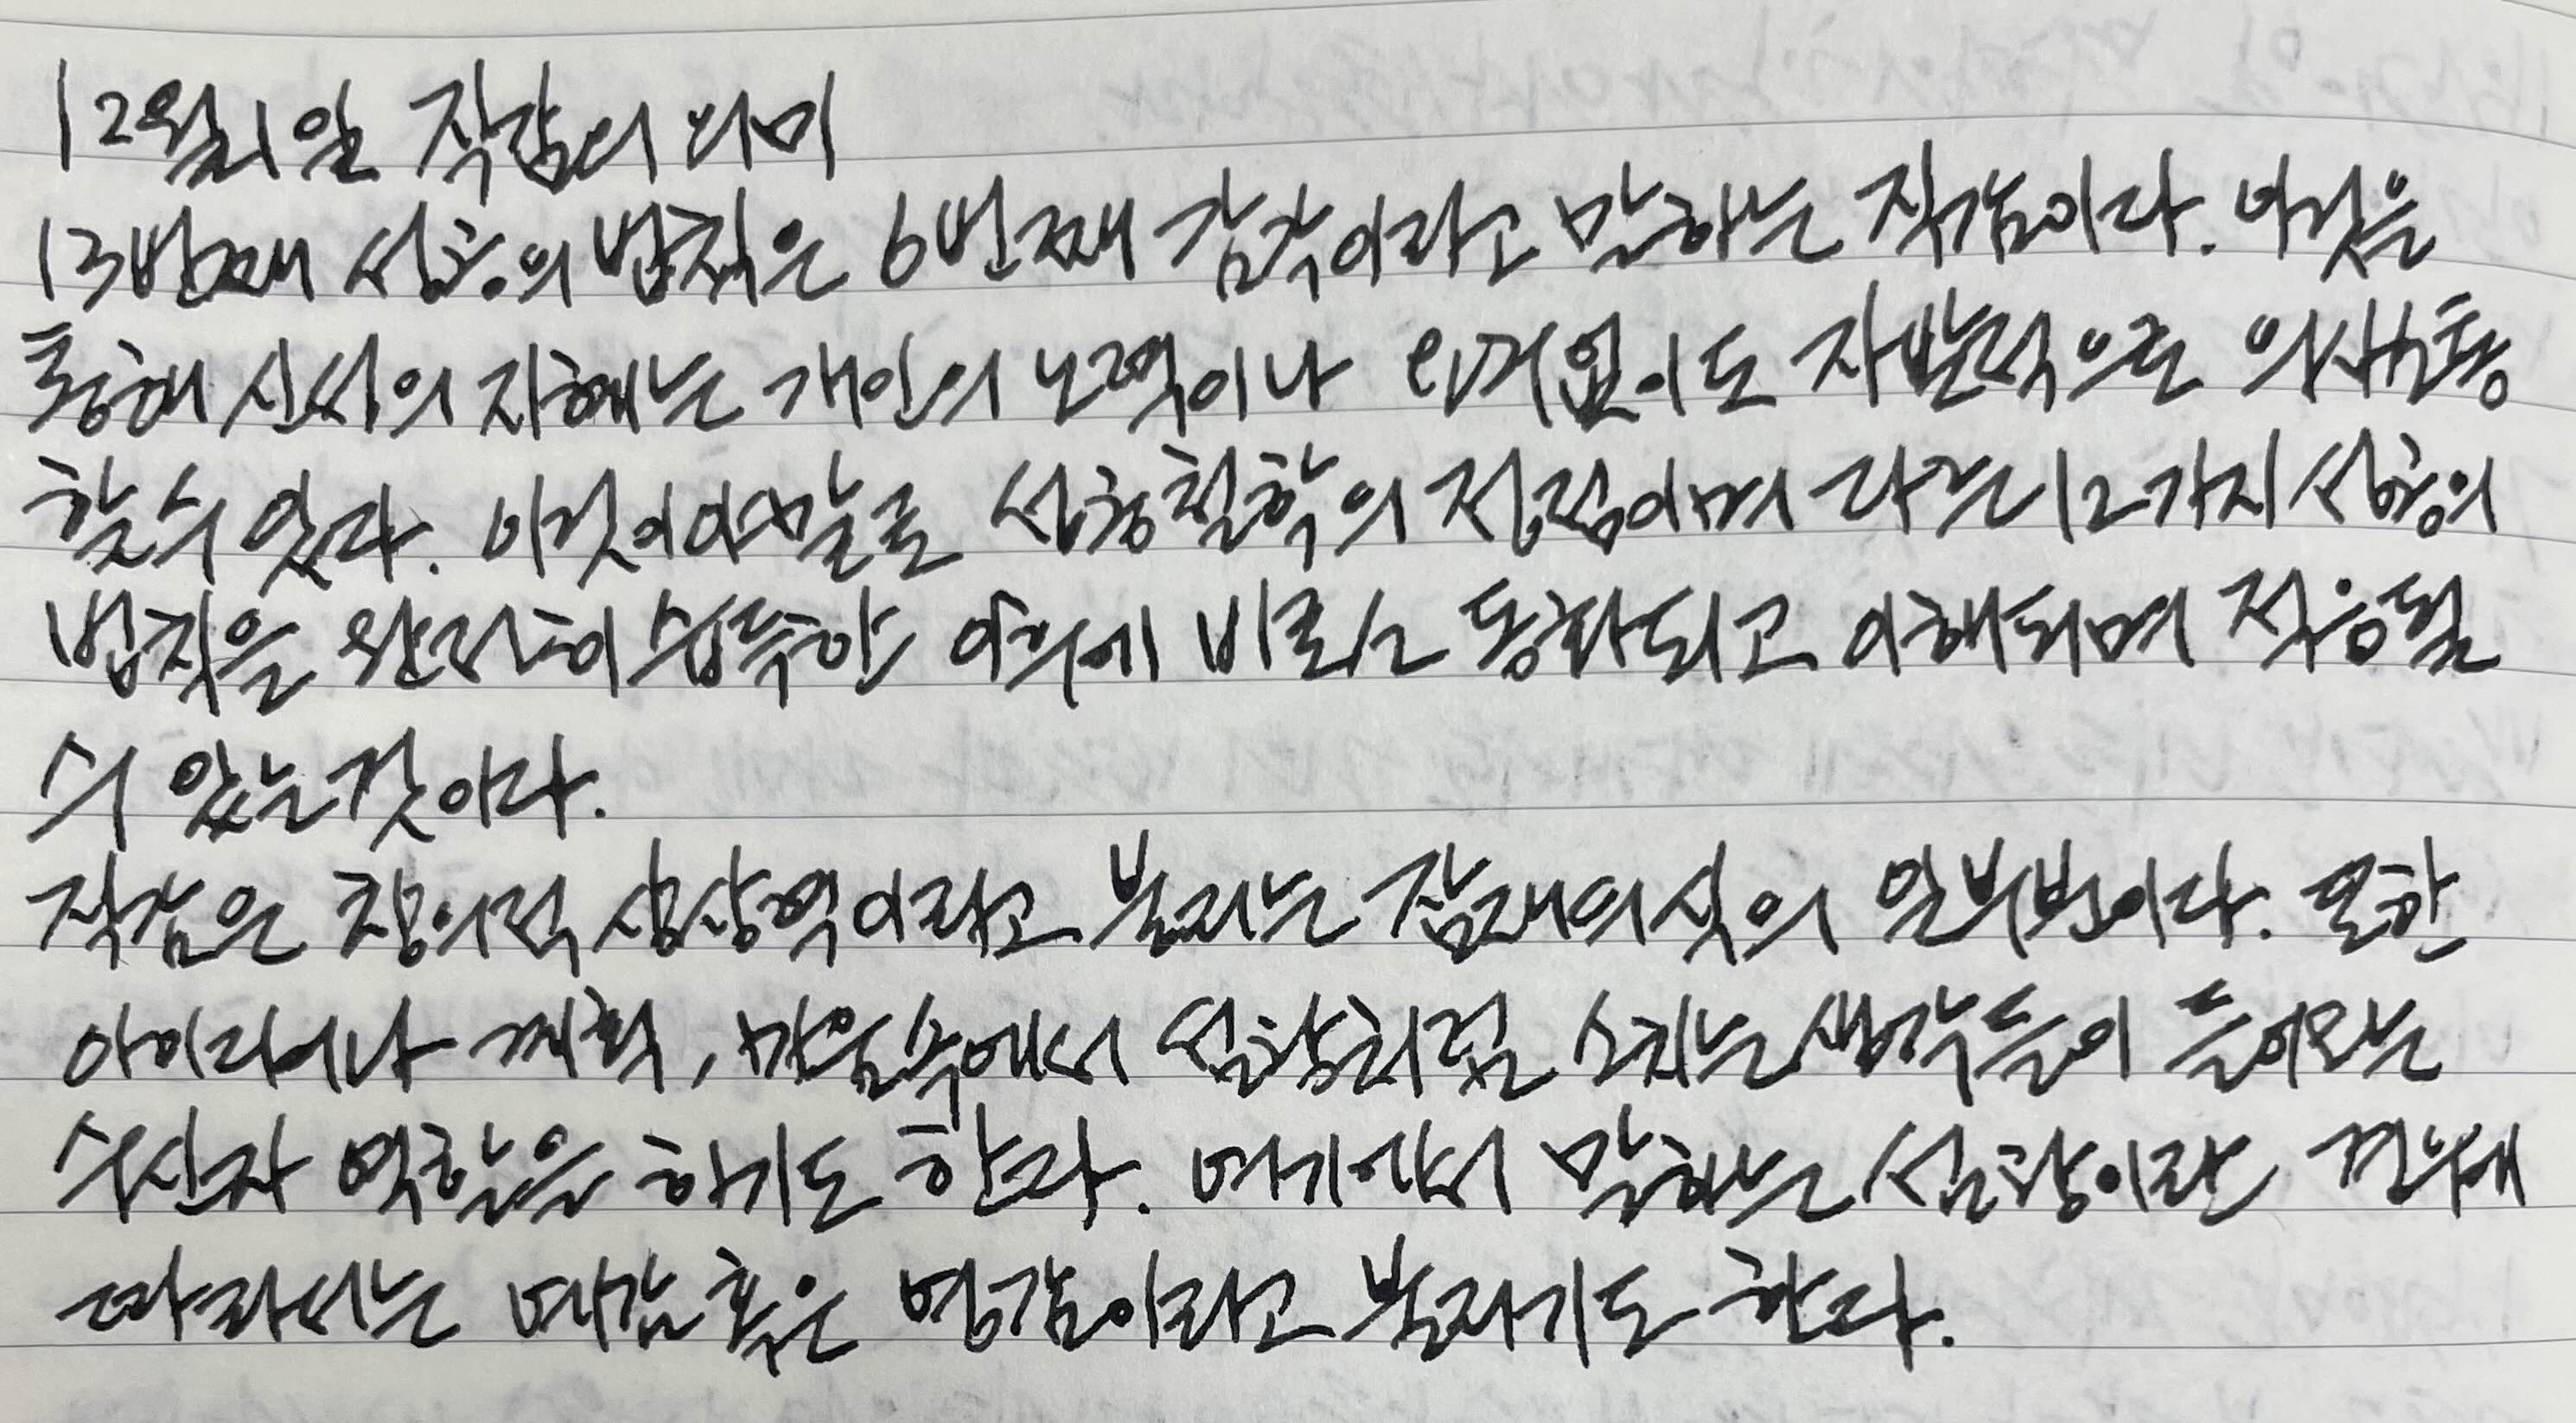 12월1일 직감의 의미
13번째 성공의 법칙은 6번째 감각이라고 말하는 직감이다. 이것은
통해 신씨의 지혜는 개인의 노력이나 요구없이도 자발적으로 의사소통
할 수 있다. 이것이야말로 성공철학의 정점이며 다른 12가지 성공의
법칙을 완전히 습득한 이후에 비로소 동화되고 이해되며 적용될
수 있는 것이다.
직감은 창의적 상상력이라고 불리는 잠재의식의 일부분이다. 또한
아이디어나 계획, 마음속에서 섬광처럼 스치는 생각들이 들어오는
수신자 역할을 하기도 한다. 여기에서 말하는 섬광이란 경우에
따라서는 예감 혹은 영감이라고 불리기도 한다.